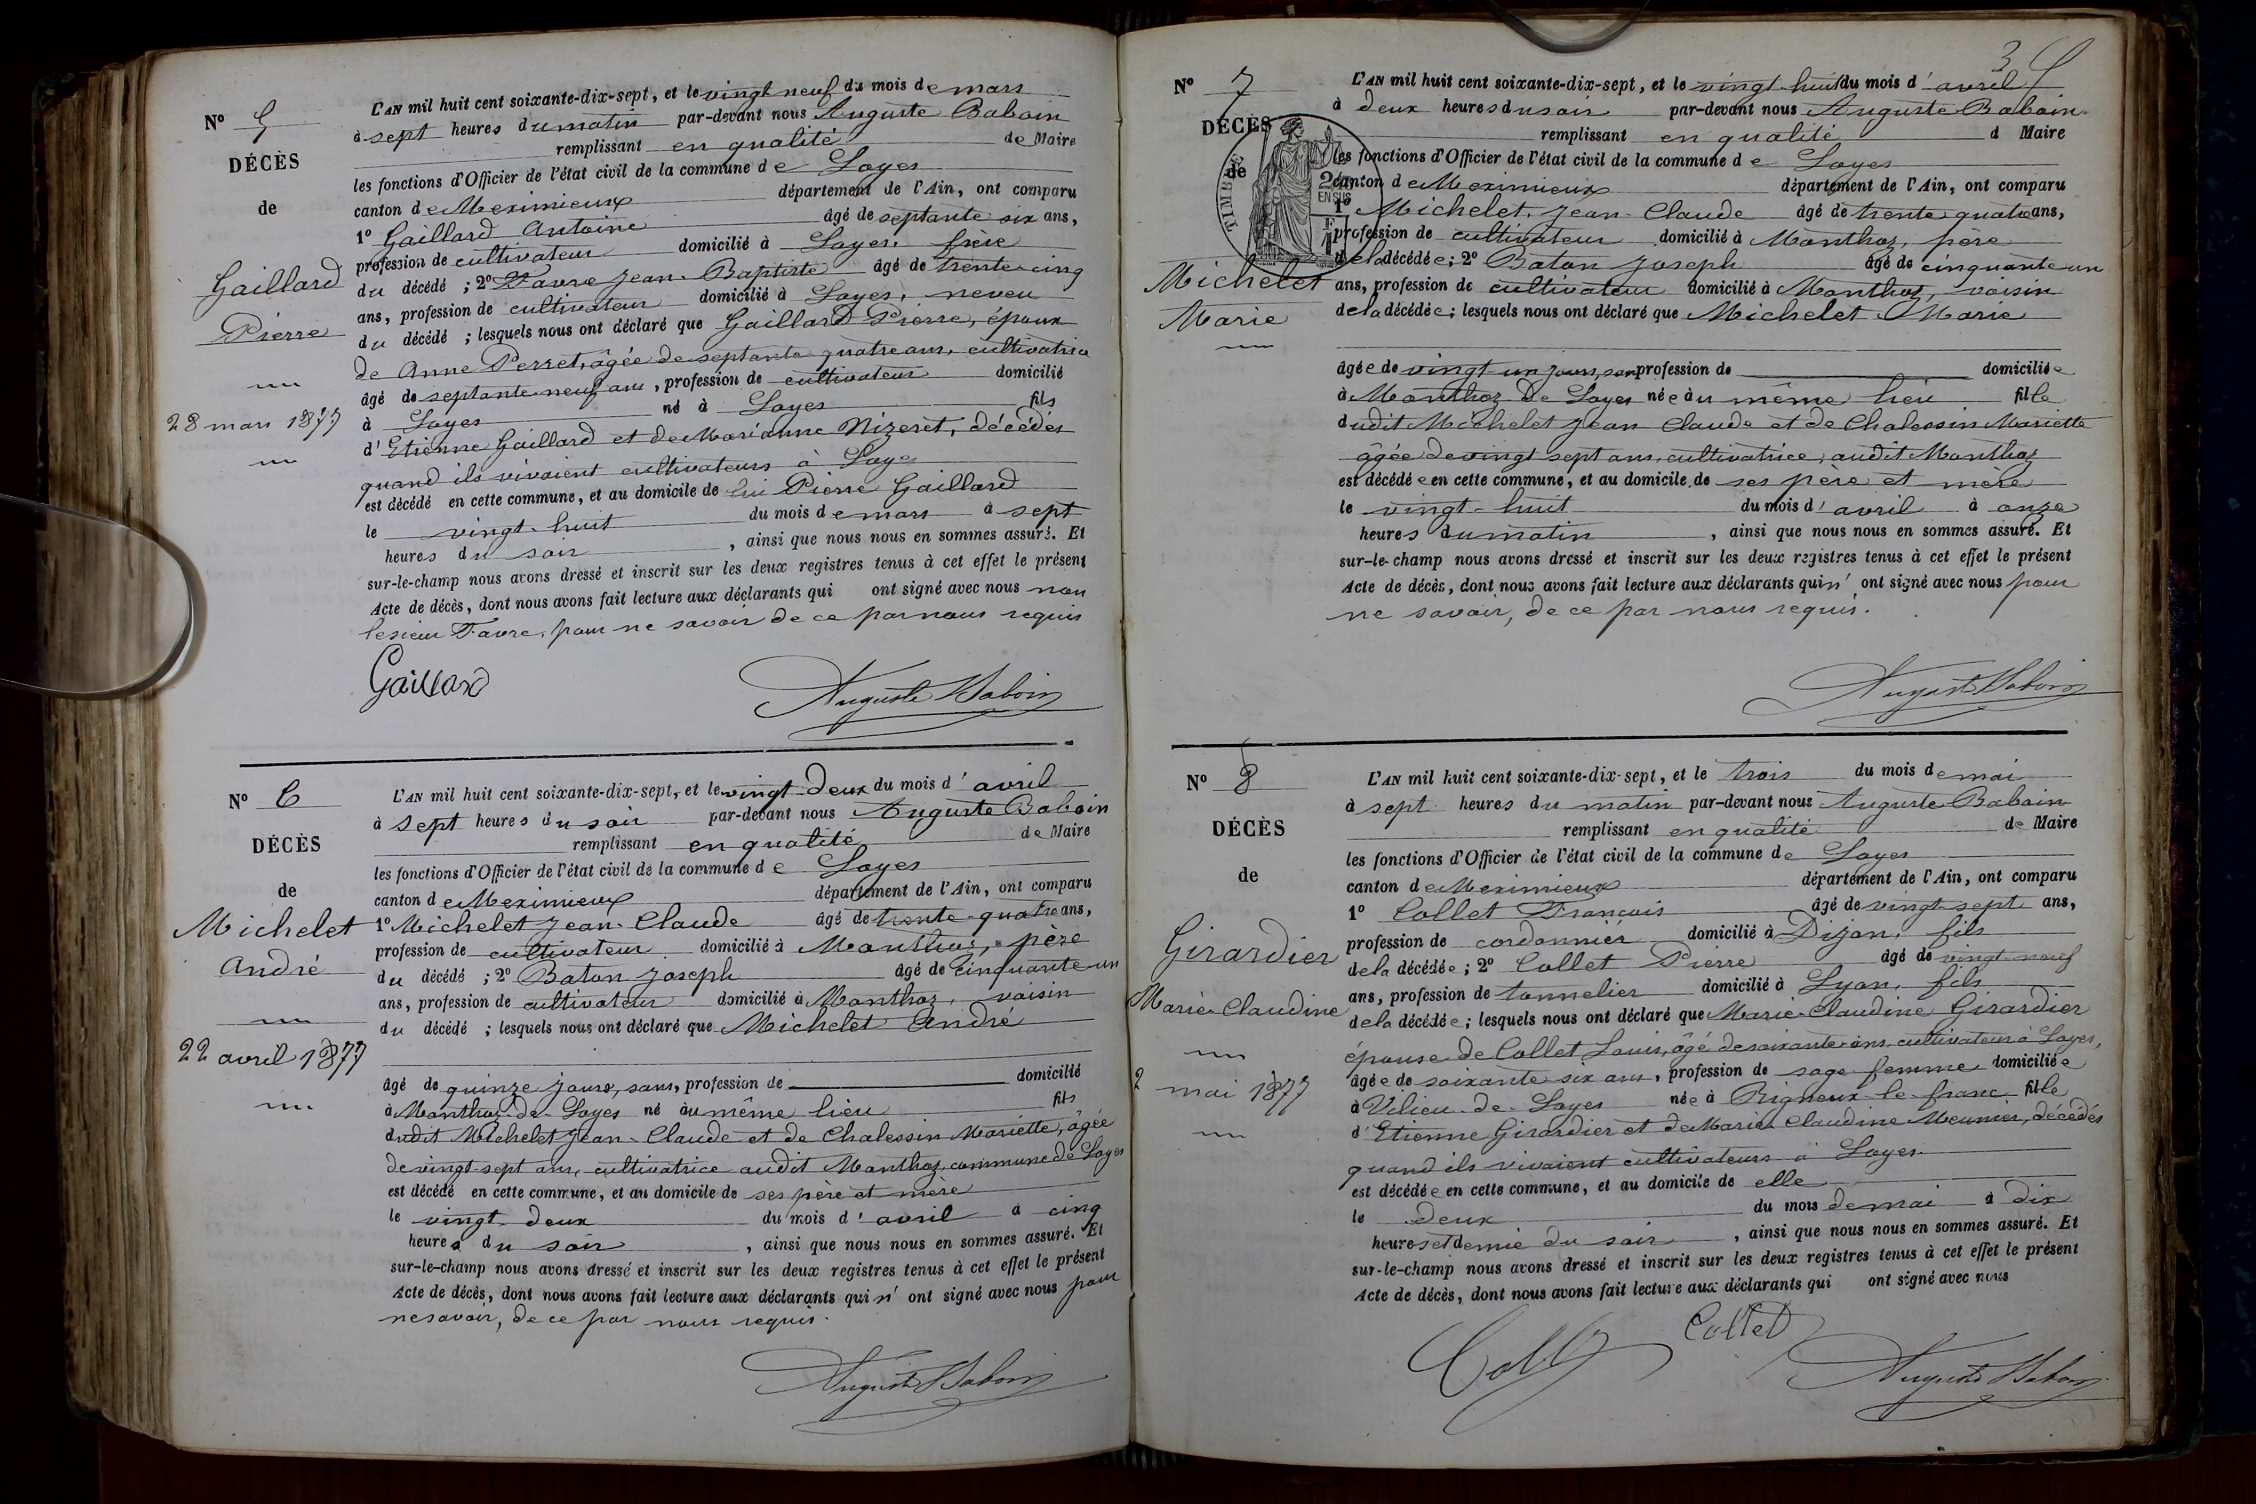 N° 5
DÉCÈS
de
Gaillard
Pierre
28 mars 1877
L'AN mil huit cent soixante-dix-sept, et le vingt neuf du mois de mars
à sept heures du matin par-devant nous Auguste Baboin
remplissant en qualité de Maire
les fonctions d'Officier de l'état civil de la commune de Loyes
canton de Meximieux département de l'Ain, ont comparu
1° Gaillard Antoine âgé de septante six ans,
profession de cultivateur domicilié à Loyes, frère
du décédé ; 2° Favre Jean-Baptiste âgé de trente-cinq
ans, profession de cultivateur domicilié à Loyes, neveu
du décédé ; lesquels nous ont déclaré que Gaillard Pierre, époux
de Anne Perret, âgée de septante quatre ans, cultivatrice
âgé de septante neuf ans, profession de cultivateur domicilié
à Loyes né à Loyes fils
d'Etienne Gaillard et de Marianne Nizeret, décédés
quand ils vivaient cultivateurs à Loyes
est décédé en cette commune, et au domicile de lui Pierre Gaillard
le vingt-huit du mois de mars à sept
heures du soir, ainsi que nous nous en sommes assuré. Et
sur-le-champ nous avons dressé et inscrit sur les deux registres tenus à cet effet le présent
Acte de décès, dont nous avons fait lecture aux déclarants qui ont signé avec nous non
le sieur Favre, pour ne savoir de ce par nous requis
Gaillard
Auguste Baboin
N° 6
DÉCÈS
de
Michelet
André
22 avril 1877
L'AN mil huit cent soixante-dix-sept, et le vingt-deux du mois d'avril
à sept heures du soir par-devant nous Auguste Baboin
remplissant en qualité de Maire
les fonctions d'Officier de l'état civil de la commune de Loyes
canton de Meximieux département de l'Ain, ont comparu
1° Michelet Jean-Claude âgé de trente-quatre ans,
profession de cultivateur domicilié à Monthoz, père
du décédé ; 2° Baton Joseph âgé de cinquante-un
ans, profession de cultivateur domicilié à Monthoz, voisin
du décédé ; lesquels nous ont déclaré que Michelet André
âgé de quinze jours, sans, profession de domicilié
à Monthoz-de-Loyes né au même lieu fils
dudit Michelet Jean-Claude et de Chalessin Mariette, âgée
de vingt-sept ans, cultivatrice audit Monthoz, commune de Loyes
est décédé en cette commune, et au domicile de ses père et mère
le vingt-deux du mois d'avril à cinq
heures du soir, ainsi que nous nous en sommes assuré. Et
sur-le-champ nous avons dressé et inscrit sur les deux registres tenus à cet effet le présent
Acte de décès, dont nous avons fait lecture aux déclarants qui n'ont signé avec nous pour
ne savoir, de ce par nous requis.
Auguste Baboin
N° 7
DÉCÈS
de
Michelet
Marie
TIMBRE
2/10
EN SUS
L'AN mil huit cent soixante-dix-sept, et le vingt-huit du mois d'avril
à deux heures du soir par-devant nous Auguste Baboin
remplissant en qualité d Maire
les fonctions d'Officier de l'état civil de la commune de Loyes
canton de Meximieux département de l'Ain, ont comparu
1° Michelet, Jean-Claude âgé de trente quatre ans,
profession de cultivateur domicilié à Monthoz, père
de la décédée ; 2° Baton Joseph âgé de cinquante-un
ans, profession de cultivateur domicilié à Monthoz, voisin
de la décédée ; lesquels nous ont déclaré que Michelet Marie
âgée de vingt-un jours, sans profession de domiciliée
à Monthoz de Loyes née au même lieu fille
dudit Michelet Jean Claude et de Chalessin Mariette
âgée de vingt sept ans, cultivatrice, audit Monthoz
est décédée en cette commune, et au domicile de ses père et mère
le vingt-huit du mois d'avril à onze
heures du matin, ainsi que nous nous en sommes assuré. Et
sur-le-champ nous avons dressé et inscrit sur les deux registres tenus à cet effet le présent
Acte de décès, dont nous avons fait lecture aux déclarants qui n'ont signé avec nous pour
ne savoir, de ce par nous requis.
Auguste Baboin
N° 8
DÉCÈS
de
Girardier
Marie-Claudine
2 mai 1877
L'AN mil huit cent soixante-dix-sept, et le trois du mois de mai
à sept heures du matin par-devant nous Auguste Baboin
remplissant en qualité de Maire
les fonctions d'Officier de l'état civil de la commune de Loyes
canton de Meximieux département de l'Ain, ont comparu
1° Collet François âgé de vingt-sept ans,
profession de cordonnier domicilié à Dijon, fils
de la décédée ; 2° Collet Pierre âgé de vingt-neuf
ans, profession de tonnelier domicilié à Lyon, fils
de la décédée ; lesquels nous ont déclaré que Marie-Claudine Girardier
épouse de Collet Louis, âgé de soixante-ans, cultivateur à Loyes,
âgée de soixante six ans, profession de sage femme domiciliée
à Vilieu-de-Loyes née à Rigneux-le-franc fille
d'Etienne Girardier et de Marie-Claudine Meunier, décédés
quand ils vivaient cultivateurs à Loyes
est décédée en cette commune, et au domicile de elle
le deux du mois de mai à dix
heures et demie du soir, ainsi que nous nous en sommes assuré. Et
sur-le-champ nous avons dressé et inscrit sur les deux registres tenus à cet effet le présent
Acte de décès, dont nous avons fait lecture aux déclarants qui ont signé avec nous
Collet
Auguste Baboin